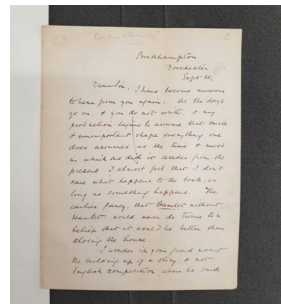 Bockhampton
Dorchester
Sept 10.
Dear Sir. I have become anxious
to hear from you again. As the days
go on, & you do not write, & my
production begins to assume that small
& unimportant shape everything one
does assumes as the time & mood
in which one did it recedes from the
present I almost feel that I don't
care what happens to the book, so
long as something happens. The
earlier fancy, that Hamlet without
Hamlet would never do turns to a
belief that it would be better than
closing the house.
I wonder if your friend meant
the building up of a story, & not
English composition, when he said